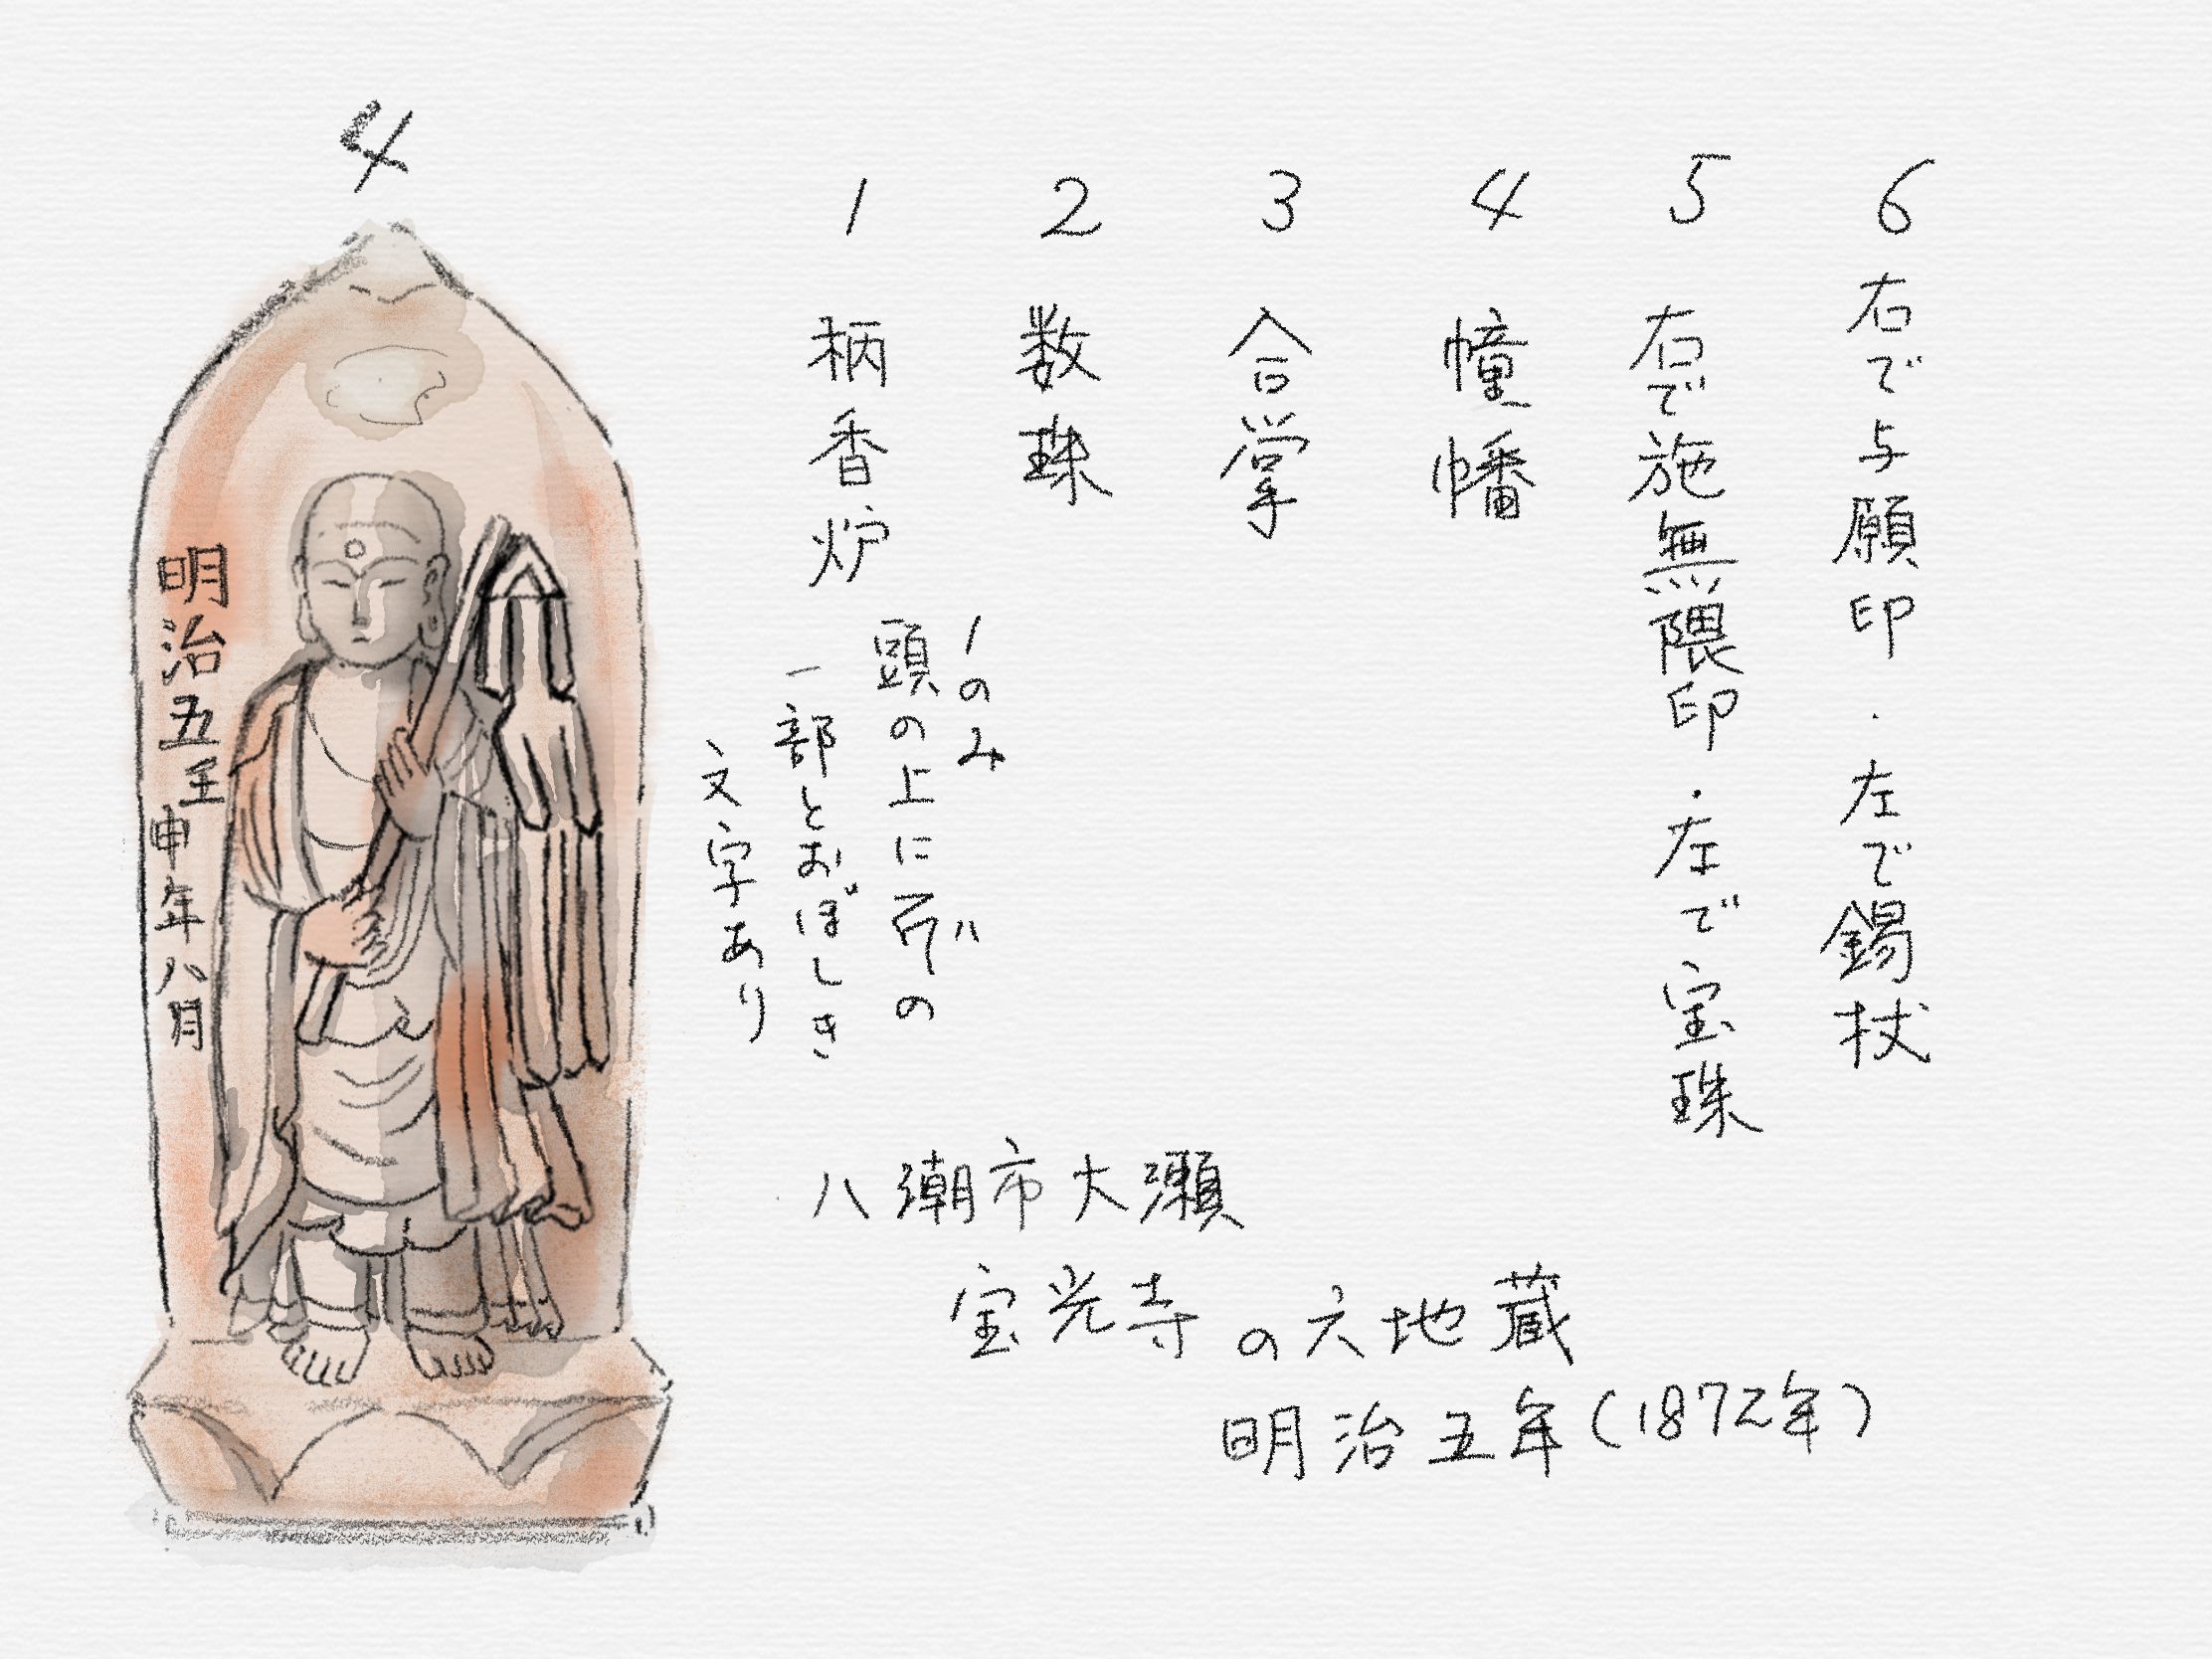 4
明治五壬申年八月
1 柄香炉
2 数珠
3 合掌
4 幢幡
5 右で施無隈印・左で宝珠
6 右で与願印・左で錫杖
1のみ
頭の上にの
一部とおぼしき
文字あり
八潮市大瀬
宝光寺の六地蔵
明治五年(1872年)